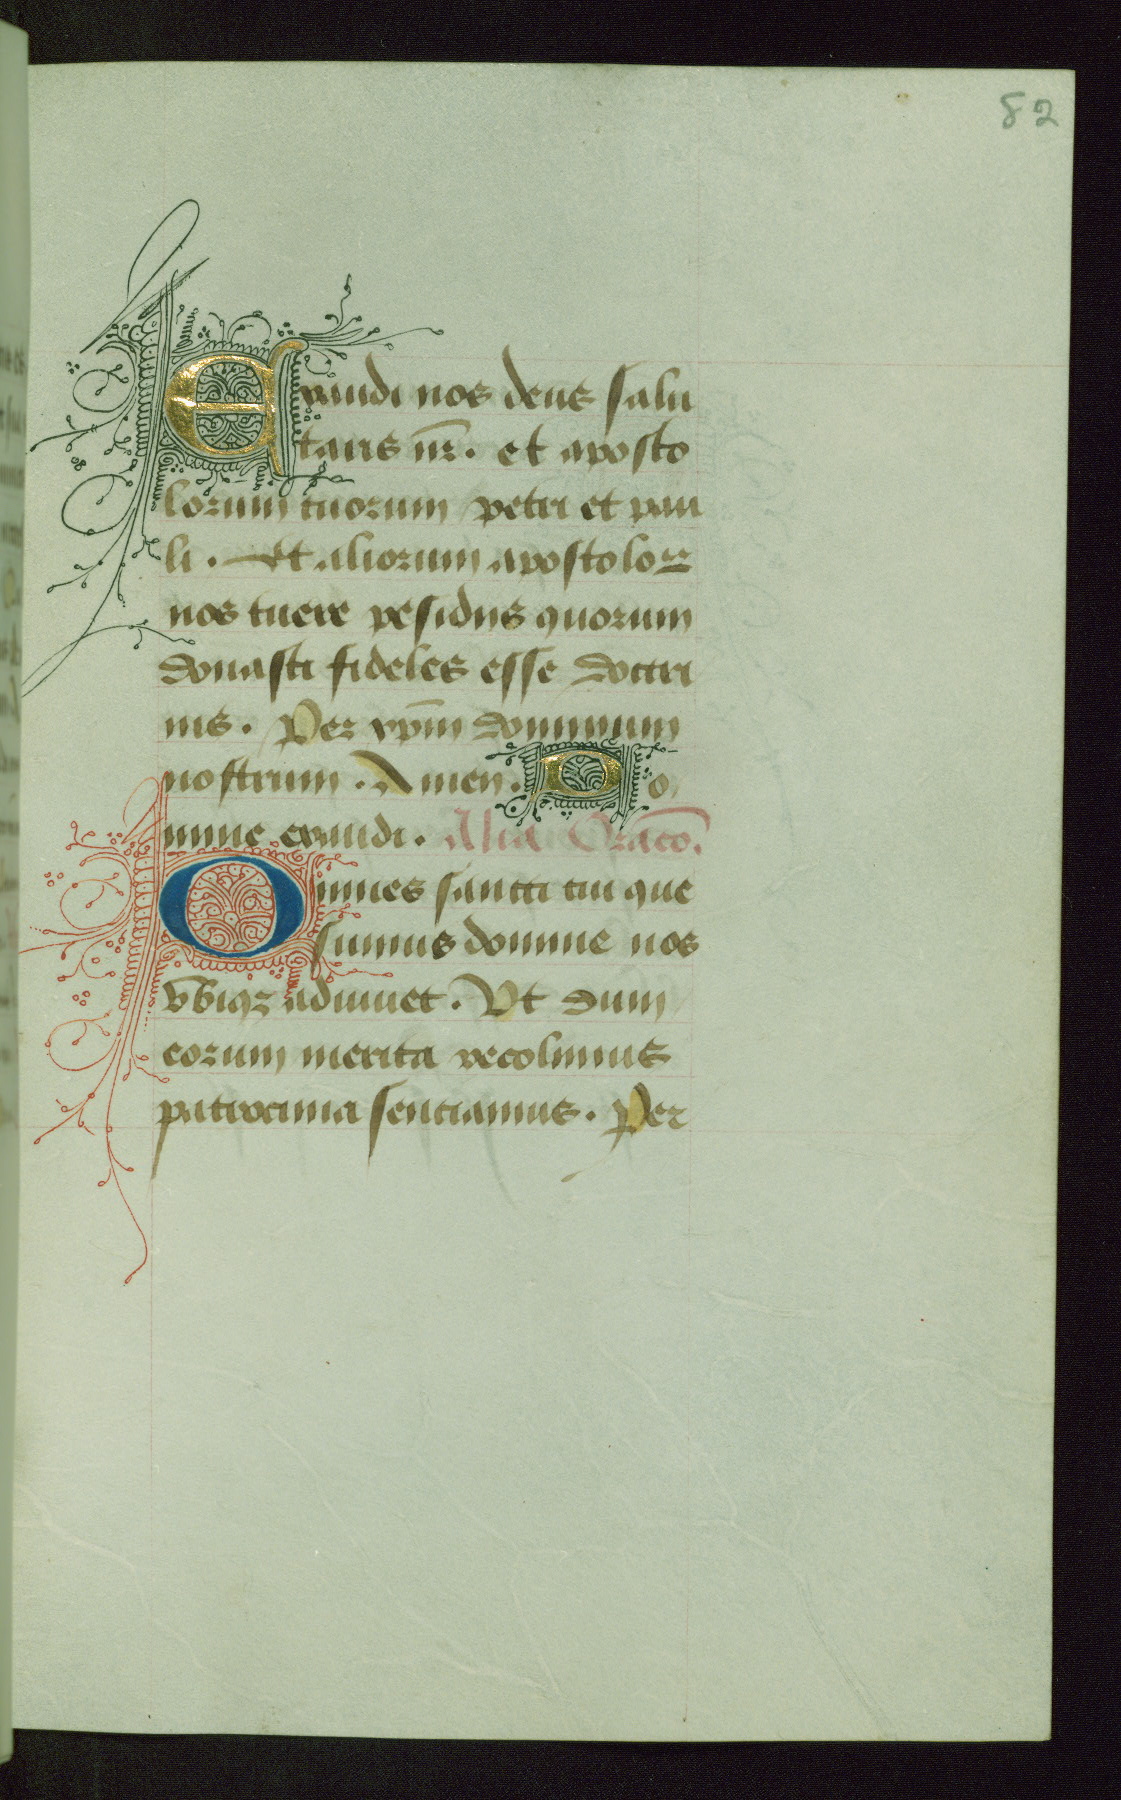 82
Exaudi nos deus salu
taris nr̄. et aposto
lorum tuorum petri et pau
li. Et aliorum apostoloꝝ
nos tuere pesidijs quorum
donasti fideles esse doctri
nis. Per xp̄m dominum
nostrum. Amen. Do
mine exaudi. Alia Oracō.
Omnes sancti tui que
sumus domine nos
vbiqꝫ adiuuet. Vt dum
eorum merita recolimus
patrocinia senciamus. Per